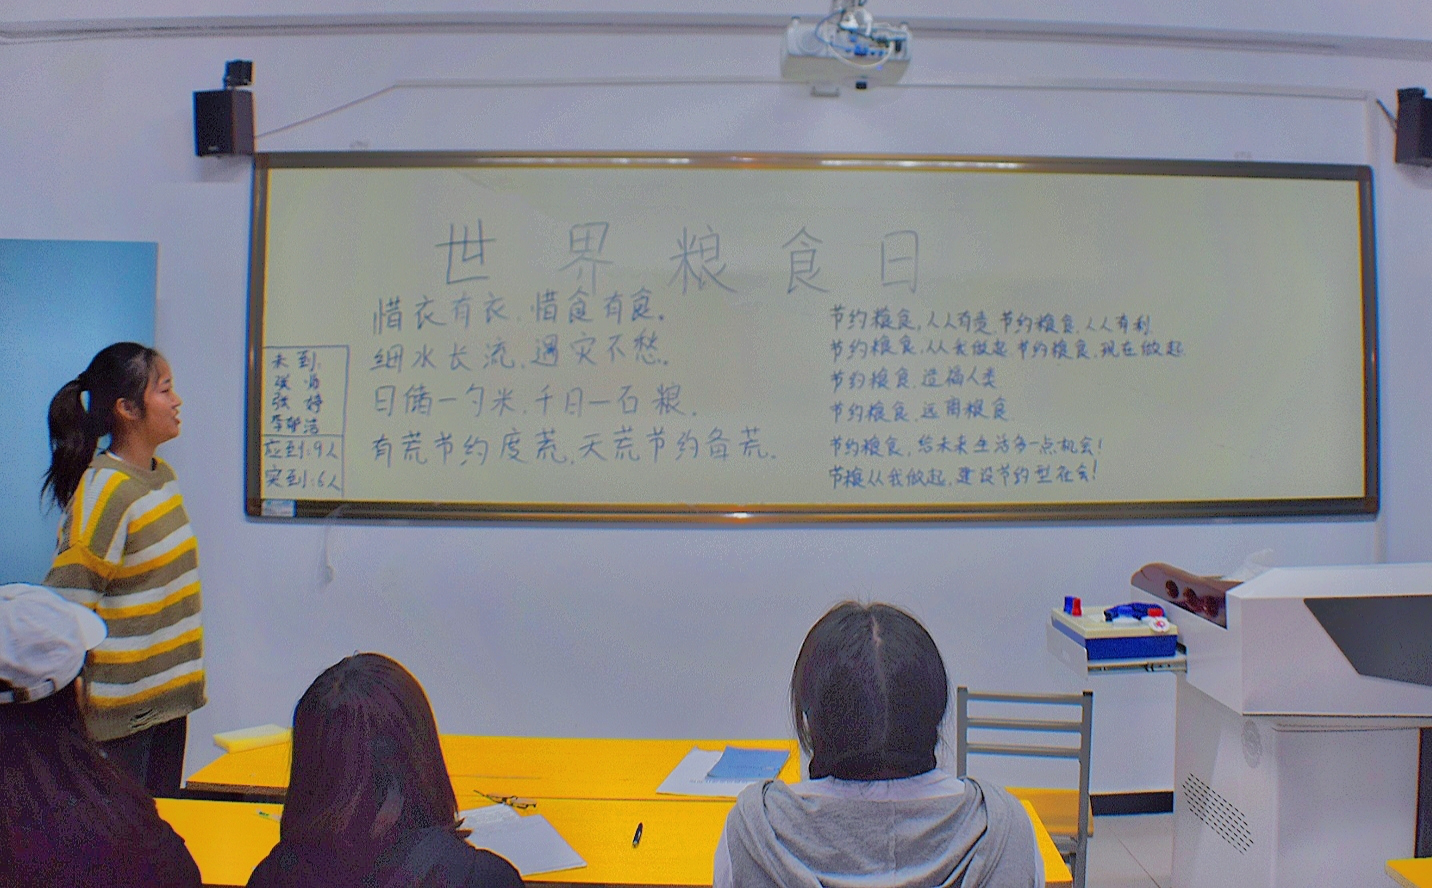 世界粮食日
惜衣有衣,惜食有食。
细水长流,遇灾不愁。
日储一勺米,千日一石粮。
有荒节约度荒,无荒节约备荒。
节约粮食,人人有责,节约粮食,人人有利
节约粮食,从我做起,节约粮食,现在做起
节约粮食,造福人类
节约粮食,远离粮食
节约粮食,给未来生活多一点机会!
节粮从我做起,建设节约型社会!
未到:
张
张婷
李郁洁
应到:9人
实到:6人